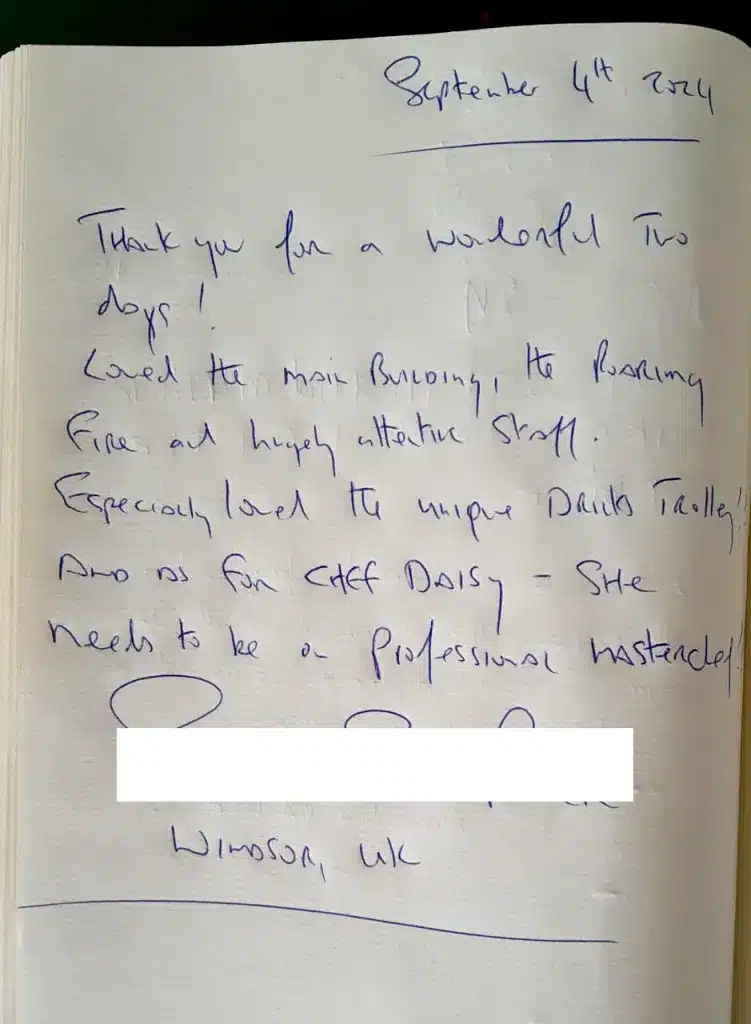 September 4th 2024
Thank you for a wonderful Two
days!
Loved the main Building, the Roaring
Fire and hugely attentive Staff.
Especially loved the unique Drinks Trolley!!
And as for CHEF DAISY - SHe
needs to be on Professional Masterchef!
WINDSOR, UK